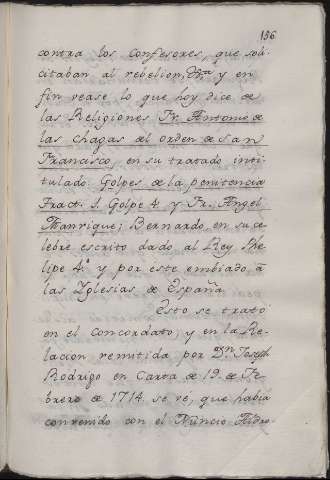 156
contra los confesores, que soli-
citaban al rebelion, &ra y en
fin vease lo que hoy dice de
las Religiones Fr. Antonio de
las chagas del orden de San
Francisco, en su tratado inti-
tulado: Golpes de la penitencia
Tract. 5. Golpe 4. y Fr. Angel
Manrique; Bernardo, en su ce-
lebre escrito dado al Rey Phe-
lipe 4.º y por este embiado, â
las Yglesias de España
Esto se trató
en el Concordato, y en la Re-
lacion remitida por Dn. Joseph
Rodrigo en Carta de 19. de Fe-
brero de 1714. se ve, que habia
convenido con el Nuncio Aldro-